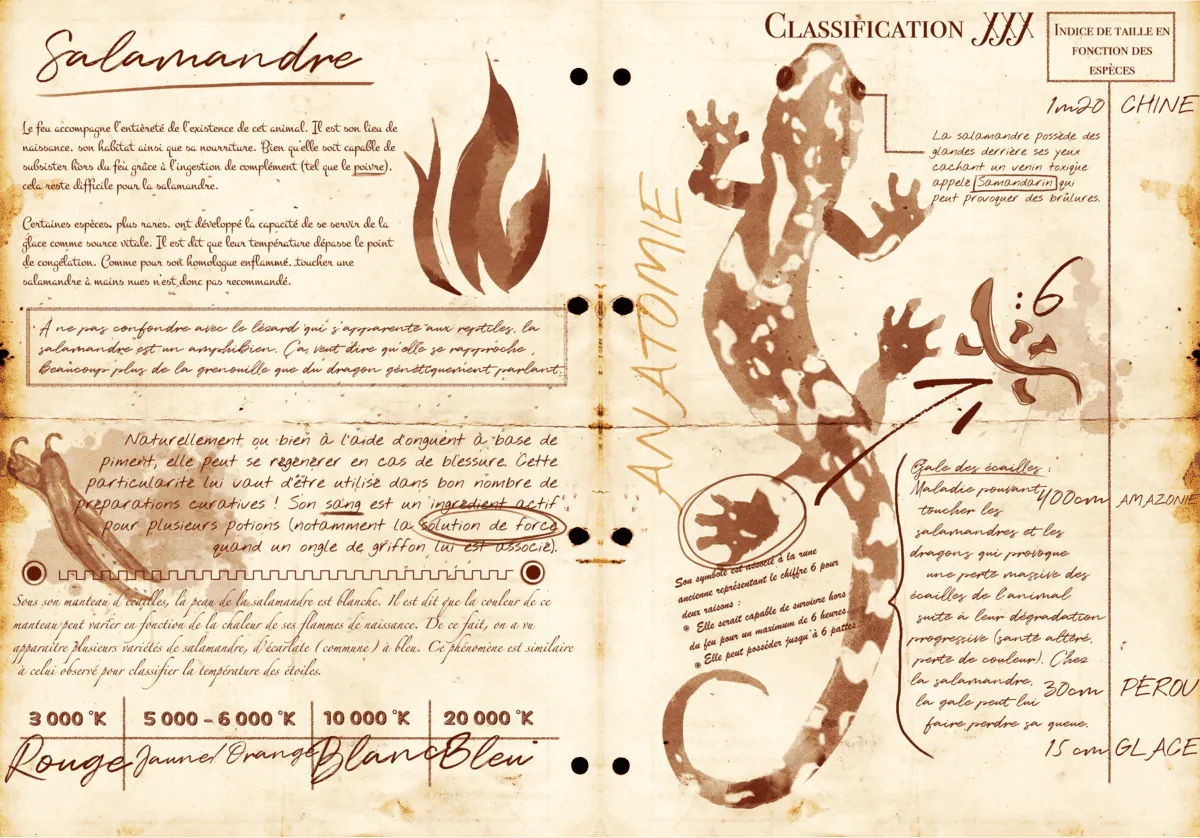 Salamandre
Le feu accompagne l'entièreté de l'existence de cet animal. Il est son lieu de
naissance, son habitat ainsi que sa nourriture. Bien qu'elle soit capable de
subsister hors du feu grâce à l'ingestion de complément (tel que le poivre),
cela reste difficile pour la salamandre.
Certaines espèces, plus rares, ont développé la capacité de se servir de la
glace comme source vitale. Il est dit que leur température dépasse le point
de congélation. Comme pour son homologue enflammé, toucher une
salamandre à mains nues n'est donc pas recommandé.
À ne pas confondre avec le lézard qui s'apparente aux reptiles, la
salamandre est un amphibien. Ça veut dire qu'elle se rapproche
beaucoup plus de la grenouille que du dragon génétiquement parlant.
Naturellement ou bien à l'aide d'onguent à base de
piment, elle peut se régénérer en cas de blessure. Cette
particularité lui vaut d'être utilisé dans bon nombre de
préparations curatives ! Son sang est un ingrédient actif
pour plusieurs potions (notamment la solution de force
quand un ongle de griffon lui est associé).
Sous son manteau d'écailles, la peau de la salamandre est blanche. Il est dit que la couleur de ce
manteau peut varier en fonction de la chaleur de ses flammes de naissance. De ce fait, on a vu
apparaître plusieurs variétés de salamandre, d'écarlate (commune) à bleu. Ce phénomène est similaire
à celui observé pour classifier la température des étoiles.
3 000 °K 5 000 - 6 000 °K 10 000 °K 20 000 °K
Rouge Jaune/Orange Blanc Bleu
CLASSIFICATION XXX
ANATOMIE
La salamandre possède des
glandes derrière ses yeux
cachant un venin toxique
appelé Samandarin qui
peut provoquer des brûlures.
: 6
Son symbole est associé à la rune
ancienne représentant le chiffre 6 pour
deux raisons :
Elle serait capable de survivre hors
du feu pour un maximum de 6 heures.
Elle peut posséder jusqu'à 6 pattes.
Gale des écailles :
Maladie pouvant
toucher les
salamandres et les
dragons qui provoque
une perte massive des
écailles de l'animal
suite à leur dégradation
progressive (santé altéré,
perte de couleur). Chez
la salamandre,
la gale peut lui
faire perdre sa queue.
INDICE DE TAILLE EN
FONCTION DES
ESPÈCES
1m20 CHINE
400cm AMAZONIE
30cm PÉROU
15 cm GLACE